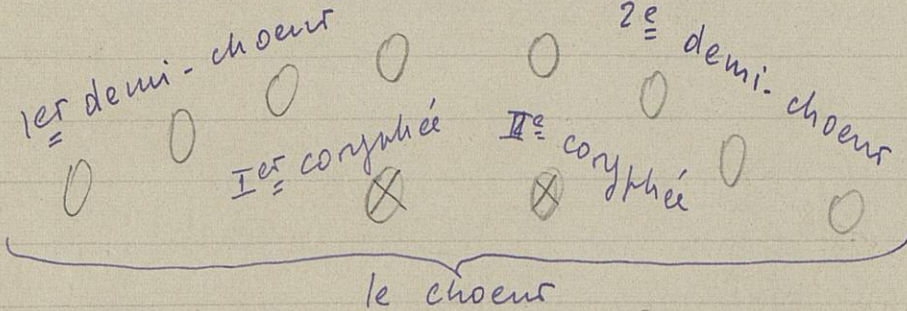 1er demi-choeur
2e demi-choeur
Ier coryphée
IIe coryphée
le choeur